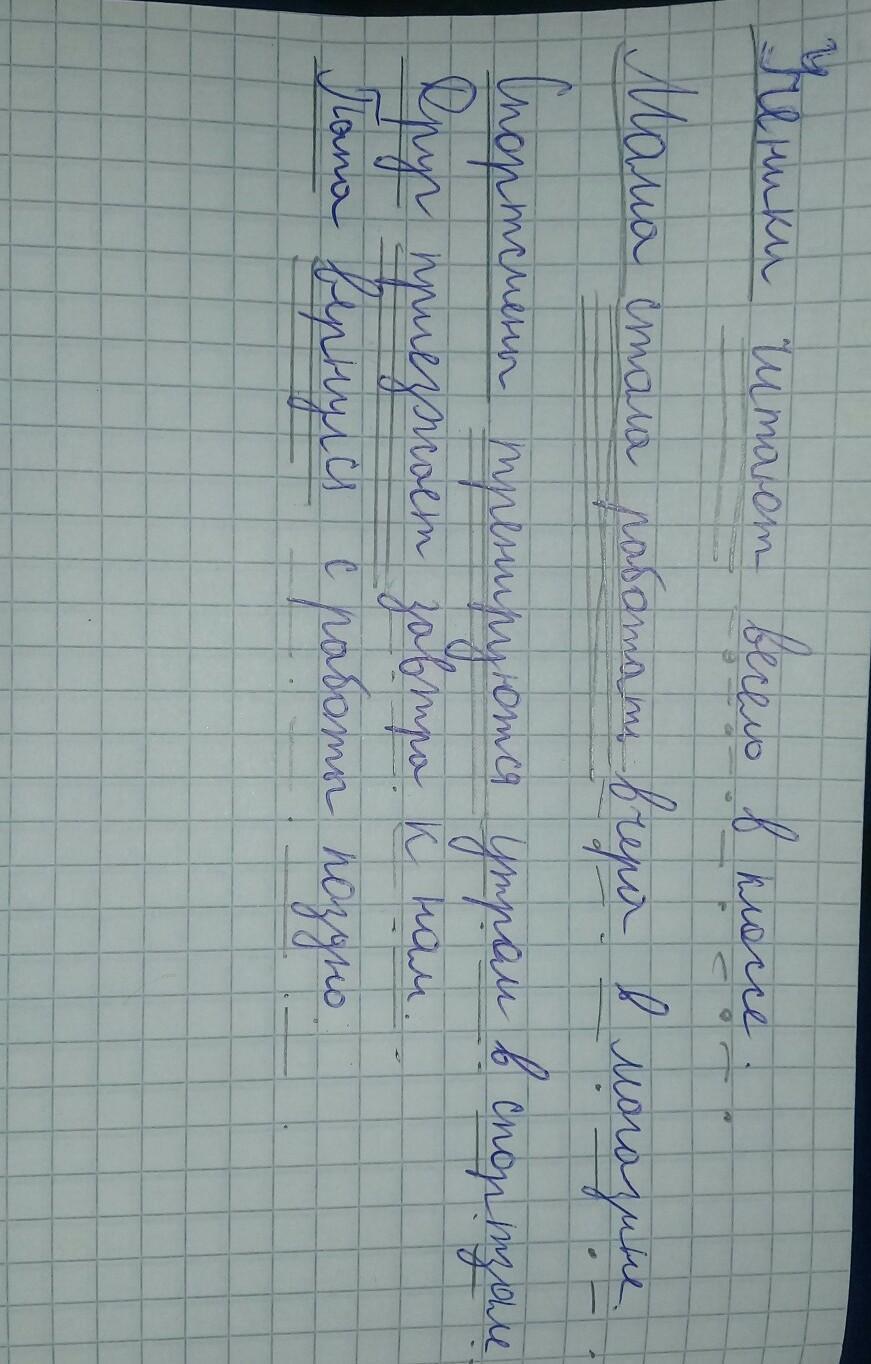 Ученики читают весело в классе.
Мама стала работать вчера в магазине.
Спортсмены тренируются утрам в спортзале
Друг приезжает завтра к нам.
Папа вернулся с работы поздно.